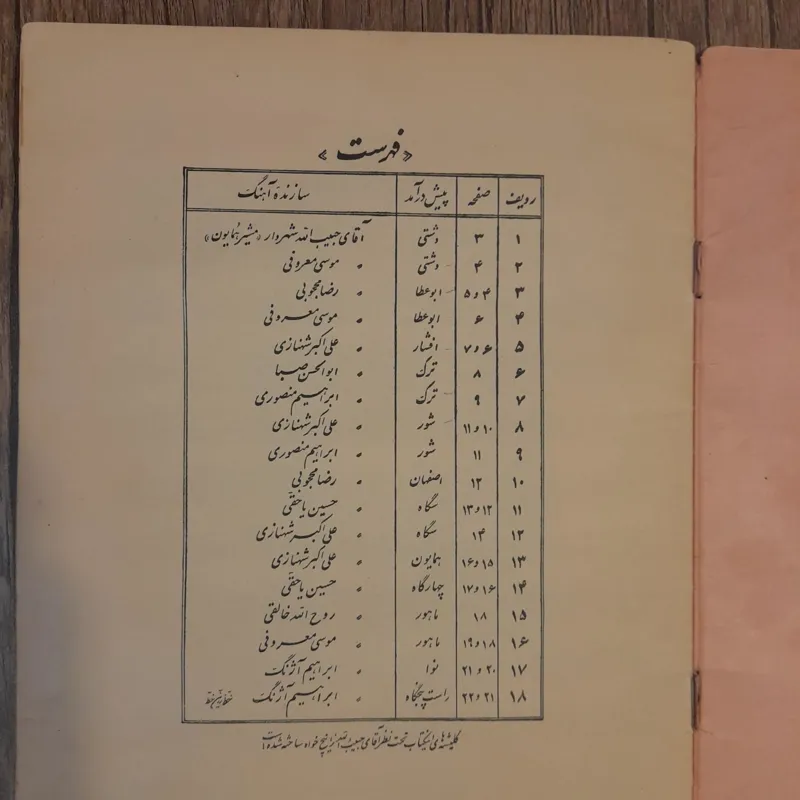 «فهرست»
ردیف صفحه پیش درآمد سازندهٔ آهنگ
۱ ۳ دشتی آقای حبیب الله شهردار «مشیر همایون»
۲ ۴ دشتی " موسی معروفی
۳ ۴ و ۵ ابوعطا " رضا محجوبی
۴ ۶ ابوعطا " موسی معروفی
۵ ۶ و ۷ افشار " علی اکبر شهنازی
۶ ۸ ترک " ابوالحسن صبا
۷ ۹ ترک " ابراهیم منصوری
۸ ۱۰ و ۱۱ شور " علی اکبر شهنازی
۹ ۱۱ شور " ابراهیم منصوری
۱۰ ۱۲ اصفهان " رضا محجوبی
۱۱ ۱۲ و ۱۳ سگاه " حسین یاحقی
۱۲ ۱۴ سگاه " علی اکبر شهنازی
۱۳ ۱۵ و ۱۶ همایون " علی اکبر شهنازی
۱۴ ۱۶ و ۱۷ چهارگاه " حسین یاحقی
۱۵ ۱۸ ماهور " روح الله خالقی
۱۶ ۱۸ و ۱۹ ماهور " موسی معروفی
۱۷ ۲۰ و ۲۱ نوا " ابراهیم آژنگ
۱۸ ۲۱ و ۲۲ راست پنجگاه " ابراهیم آژنگ
کلیشه های این کتاب تحت نظر آقای حبیب الله خواه ساخته شده است